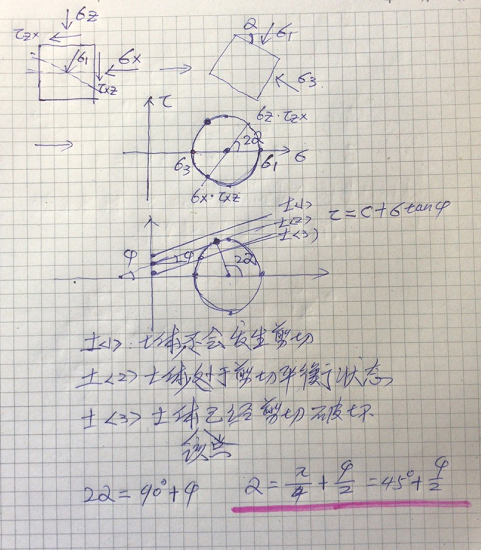 σz
τzx
σx
σ1
τxz
α
σ1
σ3
τ
σz·τzx
2α
σ
σ3
σ1
σx·τxz
土<1>
土<2>
土<3>
τ=c+σtanφ
φ
2φ
2α
土<1>：土体不会发生剪切
土<2>土体处于剪切平衡状态
土<3>土体已经剪切破坏
该点
2α=90°+φ
α=π/4+φ/2=45°+φ/2